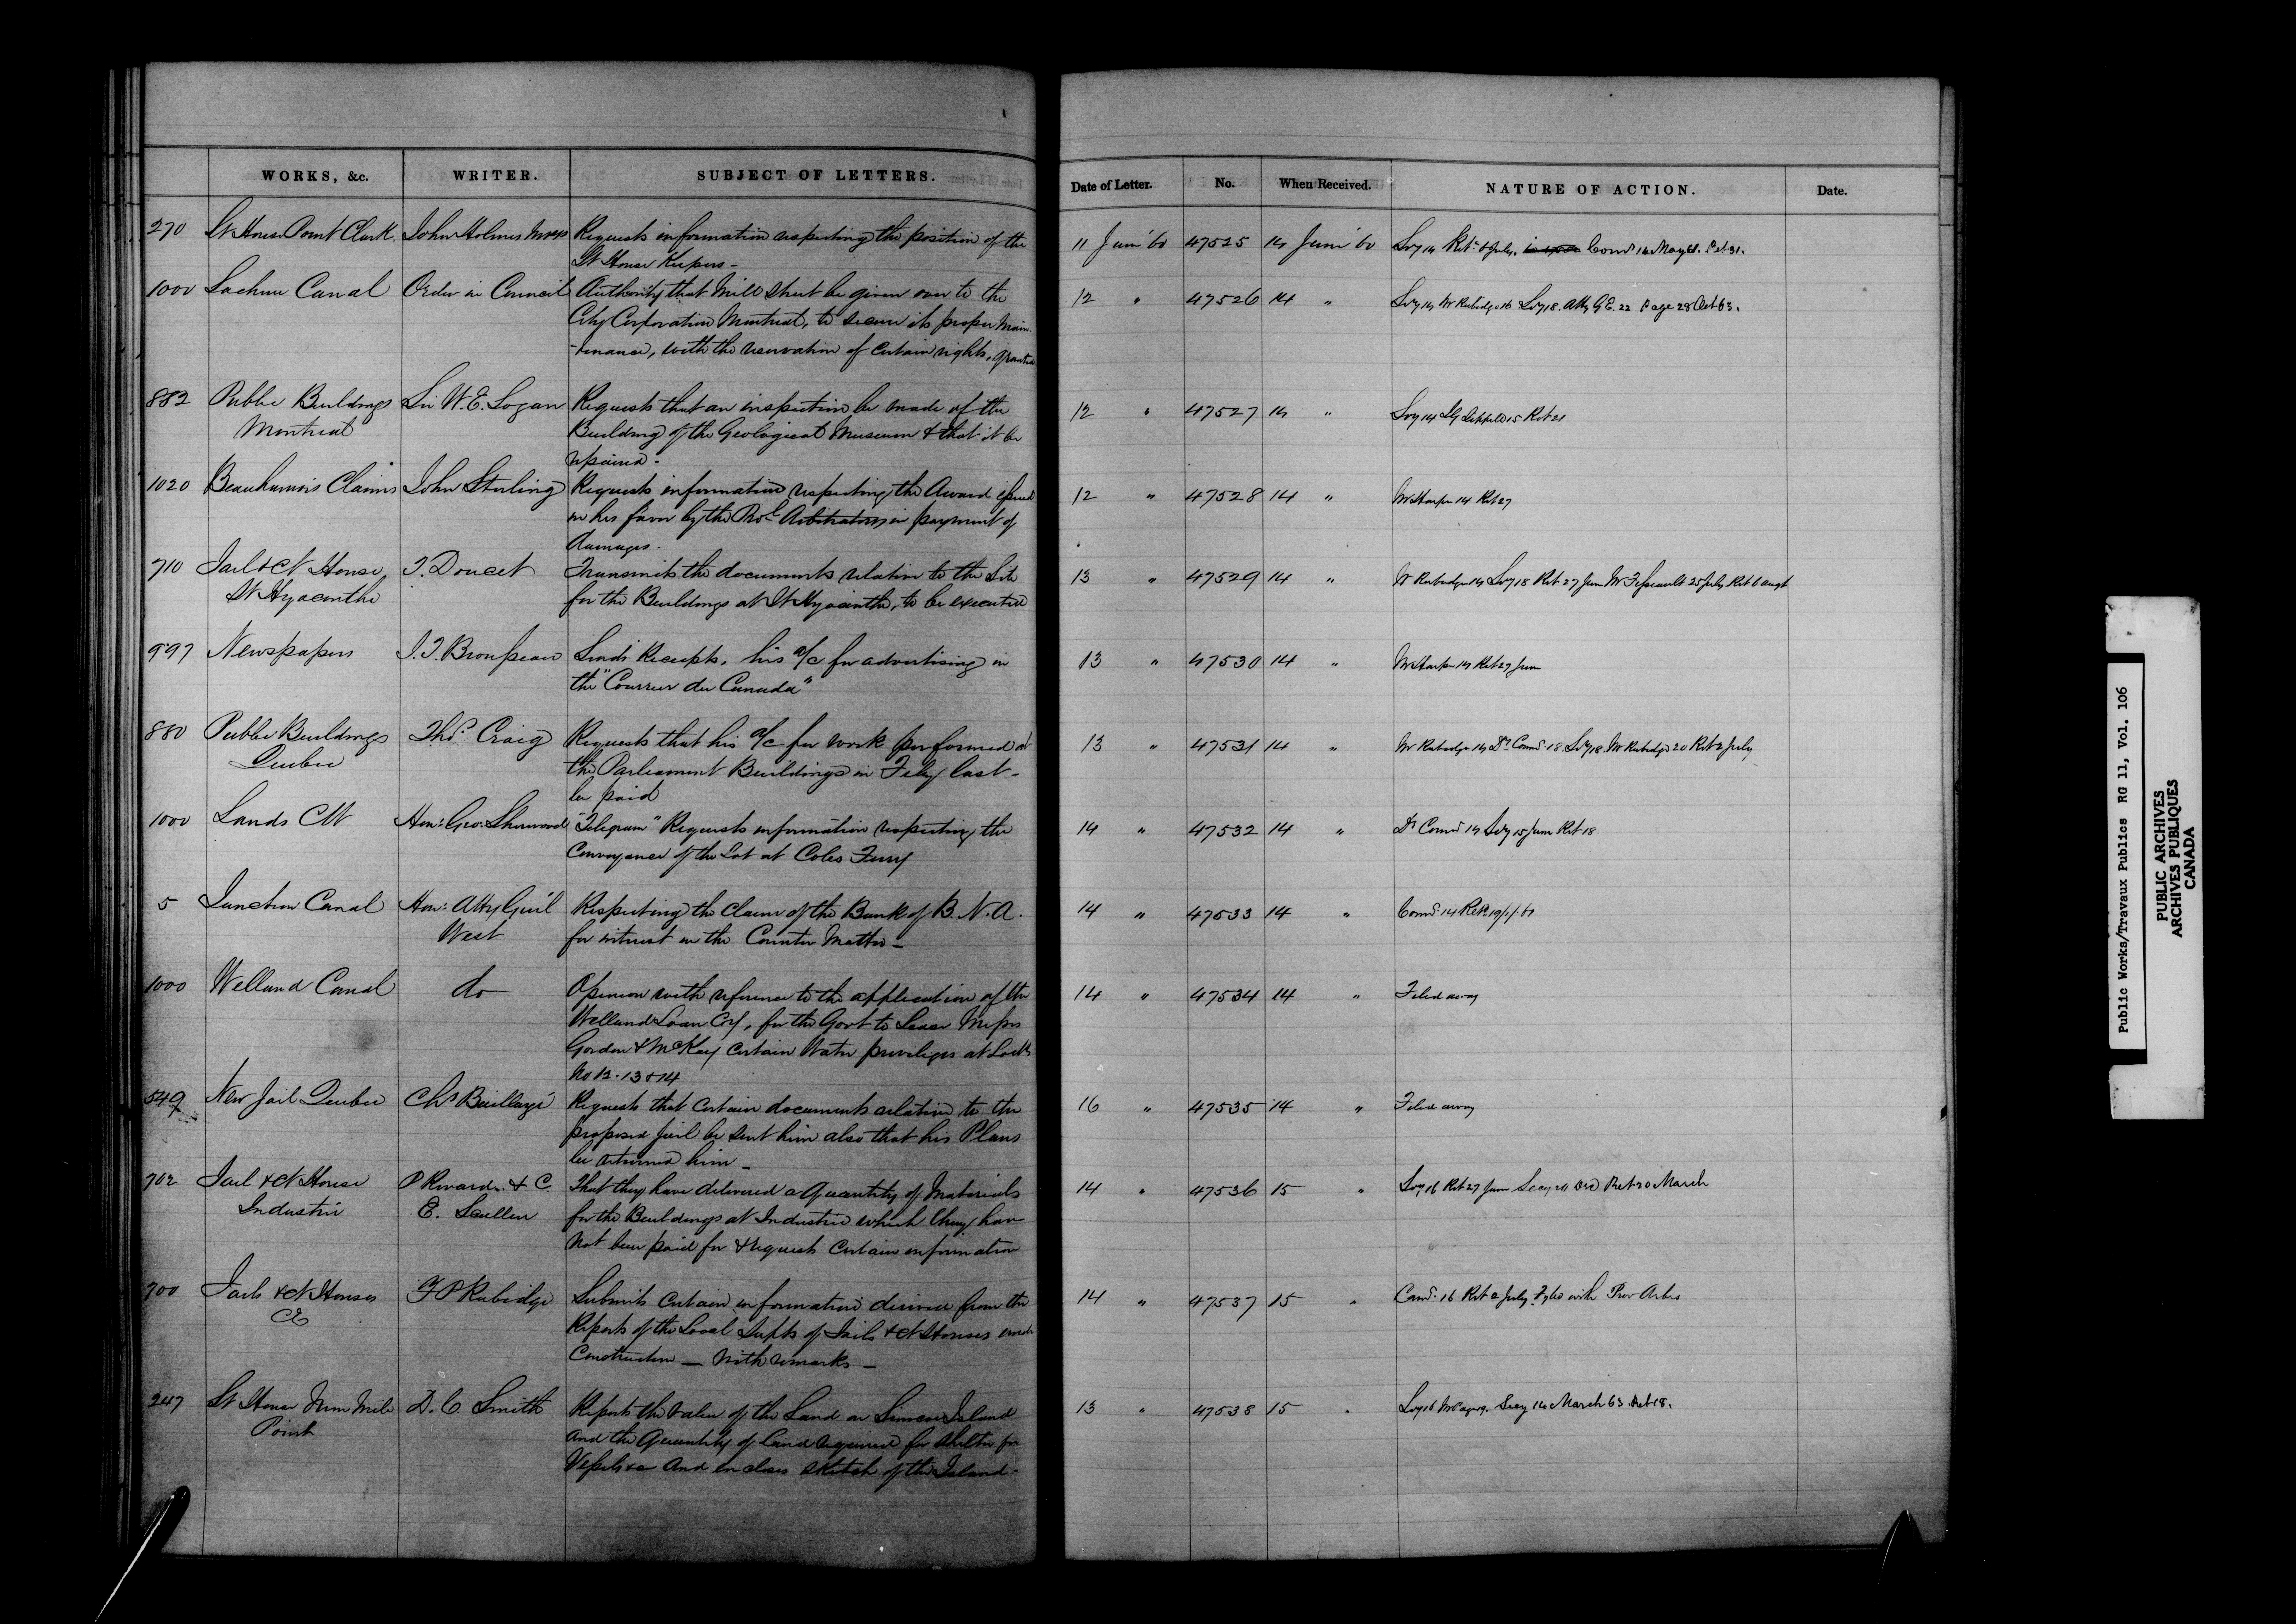 WORKS, &c. WRITER. SUBJECT OF LETTERS. Date of Letter. No. When Received. NATURE OF ACTION. Date.
270 Lt House Point Clark. John Holmes Requests information respecting the position of the 11 June '60 47525 14 June '60
Lt House Keepers -
1000 Lachine Canal Order in Council Authority that Mill Street be given over to the 12 " 47526 14 "
City Corporation Montreal, to secure its proper Main-
-tenance, with the reservation of certain rights, granted
882 Public Buildings Sir W. E. Logan Requests that an inspection be made of the 12 " 47527 14 "
Montreal Building of the Geological Museum & that it be
repaired -
1020 Beauharnois Claims John Sterling Requests information respecting the Award issued 12 " 47528 14 " Mr Harper 14 Ret 27
in his favor by the Prov'l Arbitrators in payment of
damages.
710 Jail & Ct House T. Doucet Transmits the documents relative to the Site 13 " 47529 14 " Mr Rubidge 14 Secy 18 Ret 27 June 25 July Ret 6 Augt
St Hyacinthe for the Buildings at St Hyacinthe, to be executed
997 Newspapers J. T. Brousseau Sends Receipts, his a/c for advertising in 13 " 47530 14 " Mr Harper 14 Ret 27 June
the "Courrier du Canada"
880 Public Buildings Thos. Craig Requests that his a/c for work performed at 13 " 47531 14 " Mr Rubidge 14 Dy Comr 18 Secy 18 Mr Rubidge 20 Ret 2 July
Quebec the Parliament Buildings in Feby last -
be paid
1000 Lands CW Hon: Geo. Sherwood "Telegram" Requests information respecting the 14 " 47532 14 " Dy Comr 14 Secy 15 June Ret 18
Conveyance of the Lot at Coles Ferry
5 Junction Canal Hon: Atty Gen'l Respecting the Claim of the Bank of B. N. A. 14 " 47533 14 "
West for interest in the Counter Matter -
1000 Welland Canal do Opinion with reference to the application of the 14 " 47534 14 " Filed away
Welland Loan Coy, for the Govt to Lease Messrs
Gordon & McKay certain Water privileges at Locks
No 12. 13 & 14
549 New Jail Quebec Chs Baillargé Requests that certain documents relative to the 16 " 47535 14 " Filed away
proposed jail be sent him also that his Plans
be returned him -
702 Jail & Ct House P Rivard & C. That they have delivered a Quantity of Materials 14 " 47536 15 " Secy 16 Ret 27 June Ret 20 March
Industrie E. Scullen for the Buildings at Industrie which they have
not been paid for & request certain information
700 Jails & Ct Houses F P Rubidge Submits certain information derived from the 14 " 47537 15 " Comr. 16 Ret 2 July. Fyled with Prov Arbs
CE Reports of the Local Supts of Jails & Ct Houses under
Construction - with remarks -
247 Lt House Nine Mile D. C. Smith Reports the value of the Land on Simcoe Island 13 " 47538 15 " Secy 14 March 63. Ret 18.
Point and the Quantity of land required for shelter for
Vessels &c and encloses sketch of the Island -
Public Works/Travaux Publics RG 11, Vol. 106
PUBLIC ARCHIVES
ARCHIVES PUBLIQUES
CANADA